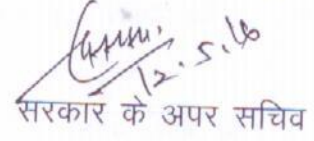 12.5.16
सरकार के अपर सचिव